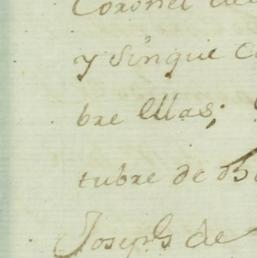 Coronel de
y sin que
bre ellas;
tubre de
Joseph de